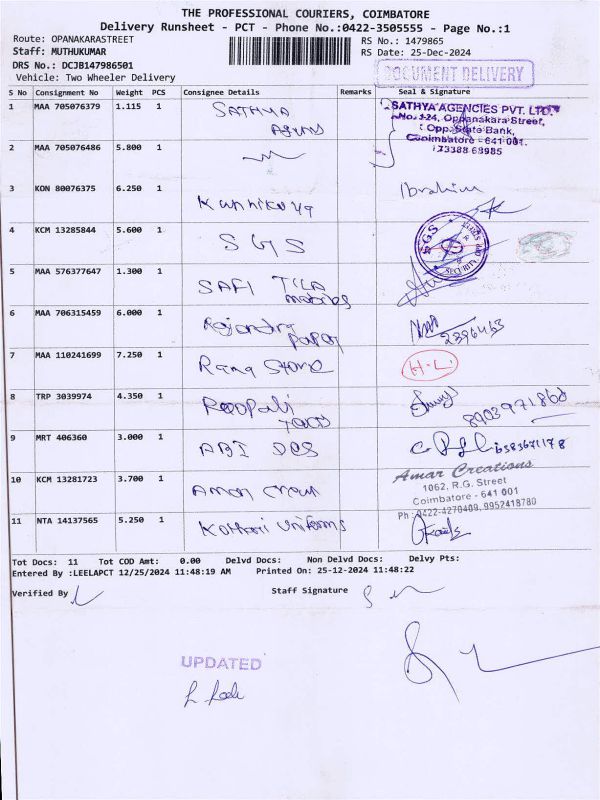 THE PROFESSIONAL COURIERS, COIMBATORE
Delivery Runsheet - PCT - Phone No.:0422-3505555 - Page No.:1
Route: OPANAKARASTREET
RS No.: 1479865
Staff: MUTHUKUMAR
RS Date: 25-Dec-2024
DRS No.: DCJB147986501
Vehicle: Two Wheeler Delivery
DOCUMENT DELIVERY
S No Consignment No Weight PCS Consignee Details Remarks Seal & Signature
1 MAA 705076379 1.115 1 SATHYA
SATHYA AGENCIES PVT. LTD.,
No. 124, Oppanakara Street,
Opp. State Bank,
Coimbatore - 641 001.
2 MAA 705076486 5.800 1
3 KON 80076375 6.250 1 Ibrahim
4 KCM 13285844 5.600 1 SGS
SGS
SECURITY
5 MAA 576377647 1.300 1 SAFI TILA
mobiles
6 MAA 706315459 6.000 1 Rajendra
paper
2396463
7 MAA 110241699 7.250 1 Rama Store H.L
8 TRP 3039974 4.350 1 Roopali
9 MRT 406360 3.000 1 ABI DCS
10 KCM 13281723 3.700 1 Aman
Amar Creations
1062, R.G. Street
Coimbatore - 641 001
Ph : 0422-4270409, 9952418780
11 NTA 14137565 5.250 1 Kothari Uniforms
Tot Docs: 11 Tot COD Amt: 0.00 Delvd Docs: Non Delvd Docs: Delvy Pts:
Entered By :LEELAPCT 12/25/2024 11:48:19 AM Printed On: 25-12-2024 11:48:22
Verified By
Staff Signature
UPDATED